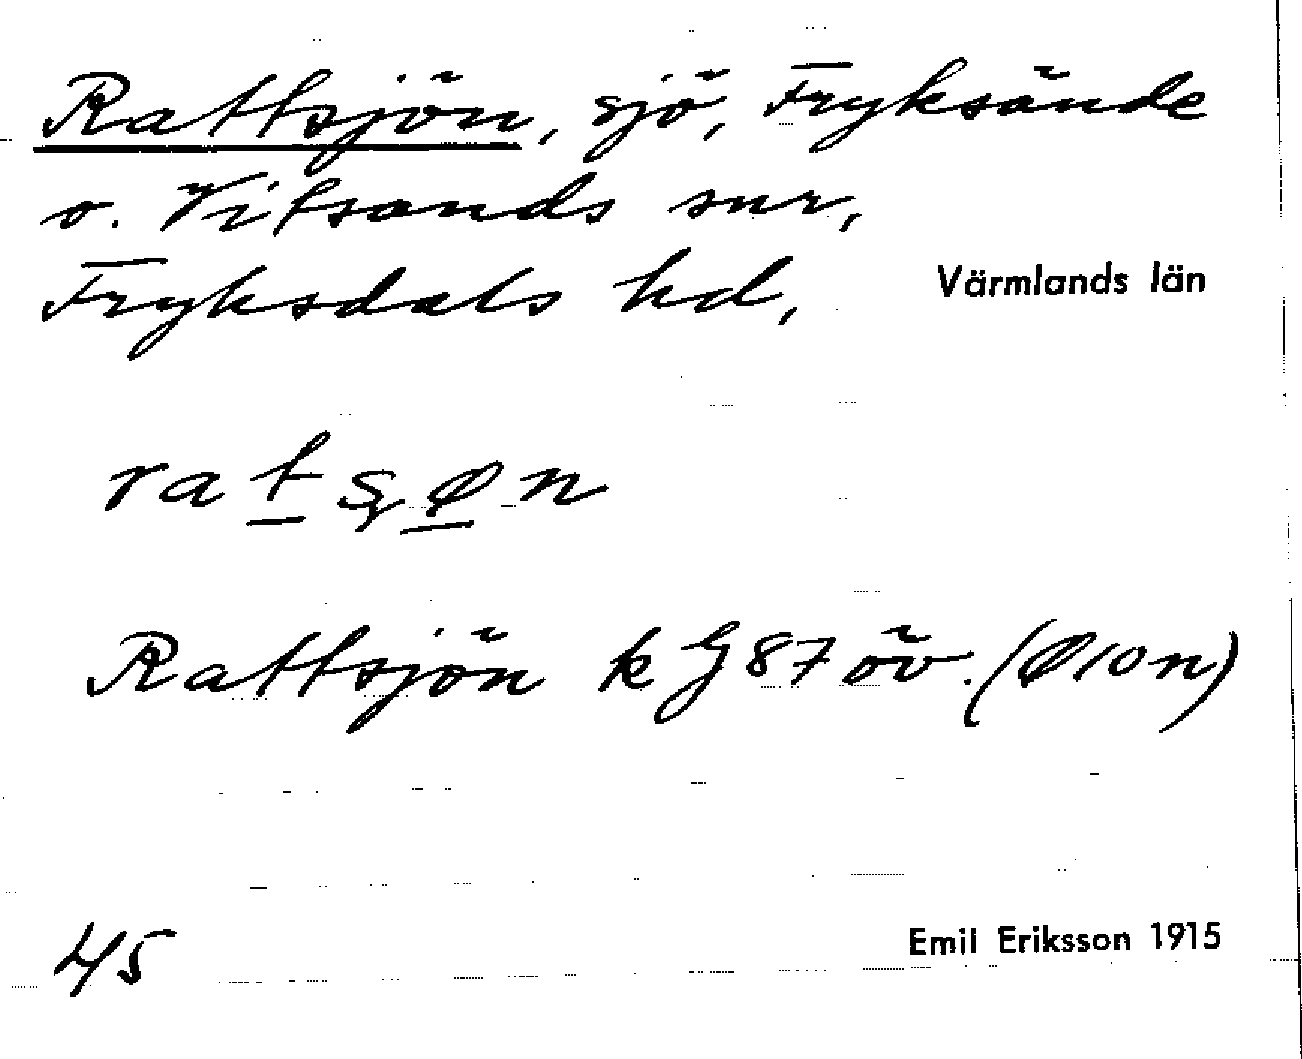 Rattsjön, sjö, Fryksände
o. Vitsands snr,
Fryksdals hd, Värmlands län
ratsøn
Rattsjön k G 87 öv. (Ø 10 n)
45 Emil Eriksson 1915